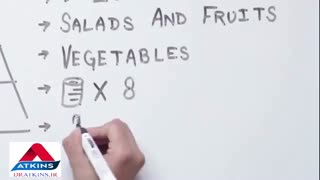 → SALADS AND FRUITS
→ VEGETABLES
→ X 8
→
ATKINS
DRATKINS.IR